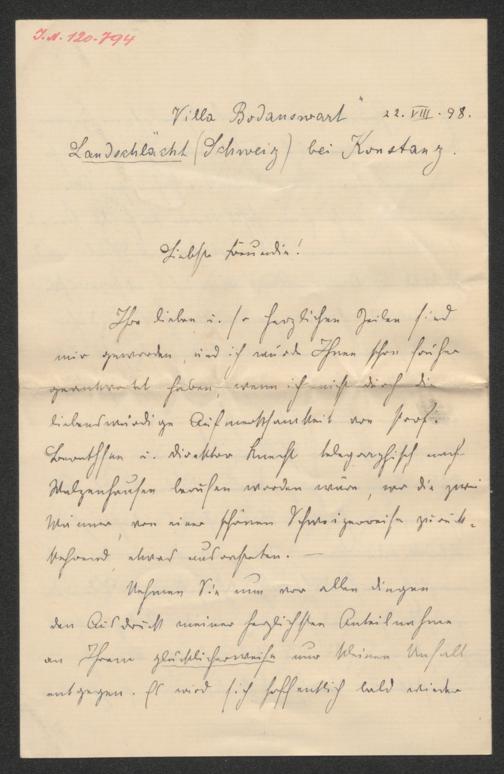 I.N. 120.794
Villa Bodanswart" 22. VIII. 98.
Landschlacht (Schweiz) bei Konstanz.
Liebste Freundin!
Ihre lieben u. so herzlichen Zeilen sind
mir geworden, und ich würde Ihnen schon früher
geantwortet haben, wenn ich nicht durch die
liebenswürdige Aufmerksamkeit von Prof.
u. Direktor Knecht telegraphisch nach
Walzenhausen berufen worden wäre, wo die zwei
Männer, von einer schönen Schweizerreise zurück-
kehrend, etwas ausrasteten. —
Nehmen Sie nun vor allen Dingen
den Ausdruck meiner herzlichsten Anteilnahme
an Ihrem glücklicherweise nur kleinen Unfall
entgegen. Es wird sich hoffentlich bald wieder